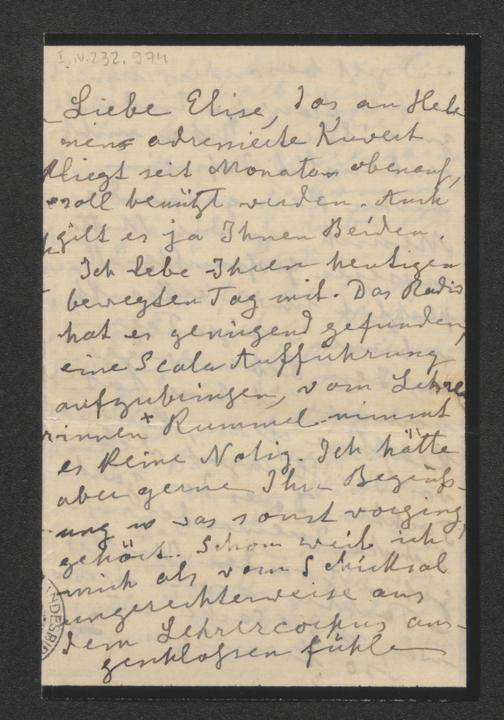 I. N. 232.974
Liebe Elise, das an Hele
nen adressierte Kuvert
liegt seit Monaten obenauf,
soll benützt werden. Auch
gilt es ja Ihnen Beiden.
Ich lebe Ihren heutigen
bewegten Tag mit. Das Radio
hat es genügend gefunden,
eine Scala Aufführung
aufzubringen, vom Lehre
rinnen Rummel nimmt
es keine Notiz. Ich hätte
aber gerne Ihre Begrüß-
ung u was sonst vorging,
gehört. Schon weil ich
mich als vom Schicksal
ungerechterweise aus
dem Lehrercorpus aus-
geschlossen fühle